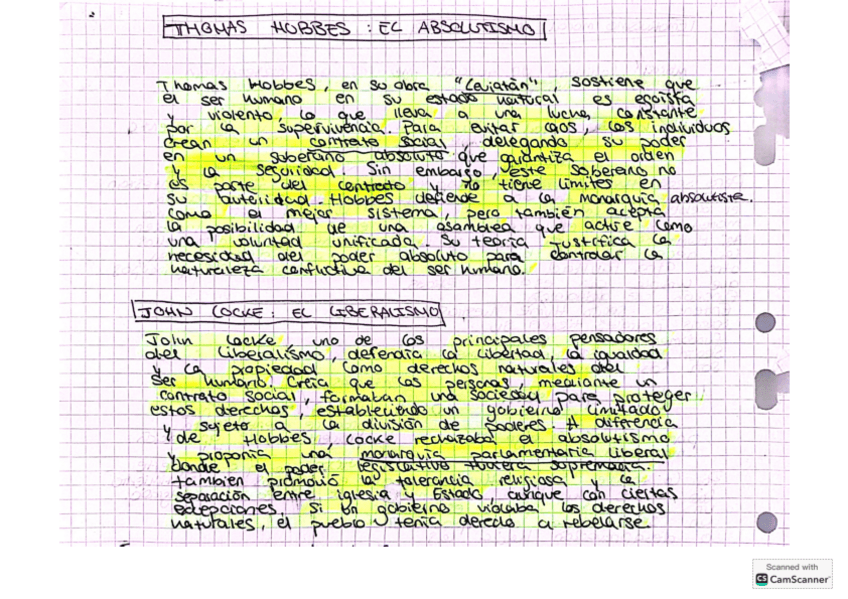 THOMAS HOBBES : EL ABSOLUTISMO
Thomas Hobbes, en su obra "Leviatán", sostiene que
el ser humano en su estado natural es egoísta
y violento, lo que lleva a una lucha constante
por la supervivencia. Para evitar caos, los individuos
crean un contrato social, delegando su poder
en un soberano absoluto que garantiza el orden
y la seguridad. Sin embargo, este soberano no
es parte del contrato y no tiene límites en
su autoridad. Hobbes defiende a la monarquía absolutista.
como el mejor sistema, pero también acepta
la posibilidad de una asamblea que actúe como
una voluntad unificada. Su teoría justifica la
necesidad del poder absoluto para controlar la
naturaleza conflictiva del ser humano.
JOHN LOCKE : EL LIBERALISMO
John Locke, uno de los principales pensadores
del liberalismo, defendía la libertad, la igualdad
y la propiedad como derechos naturales del
ser humano. Creía que las personas, mediante un
contrato social, formaban una sociedad para proteger
estos derechos, estableciendo un gobierno limitado
y sujeto a la división de poderes. A diferencia
de Hobbes, Locke rechazaba el absolutismo
y proponía una monarquía parlamentaria liberal
donde el poder legislativo tuviera supremacía.
también promovió la tolerancia religiosa y la
separación entre iglesia y Estado, aunque con ciertas
excepciones. Si un gobierno violaba los derechos
naturales, el pueblo tenía derecho a rebelarse.
Scanned with
CS CamScanner